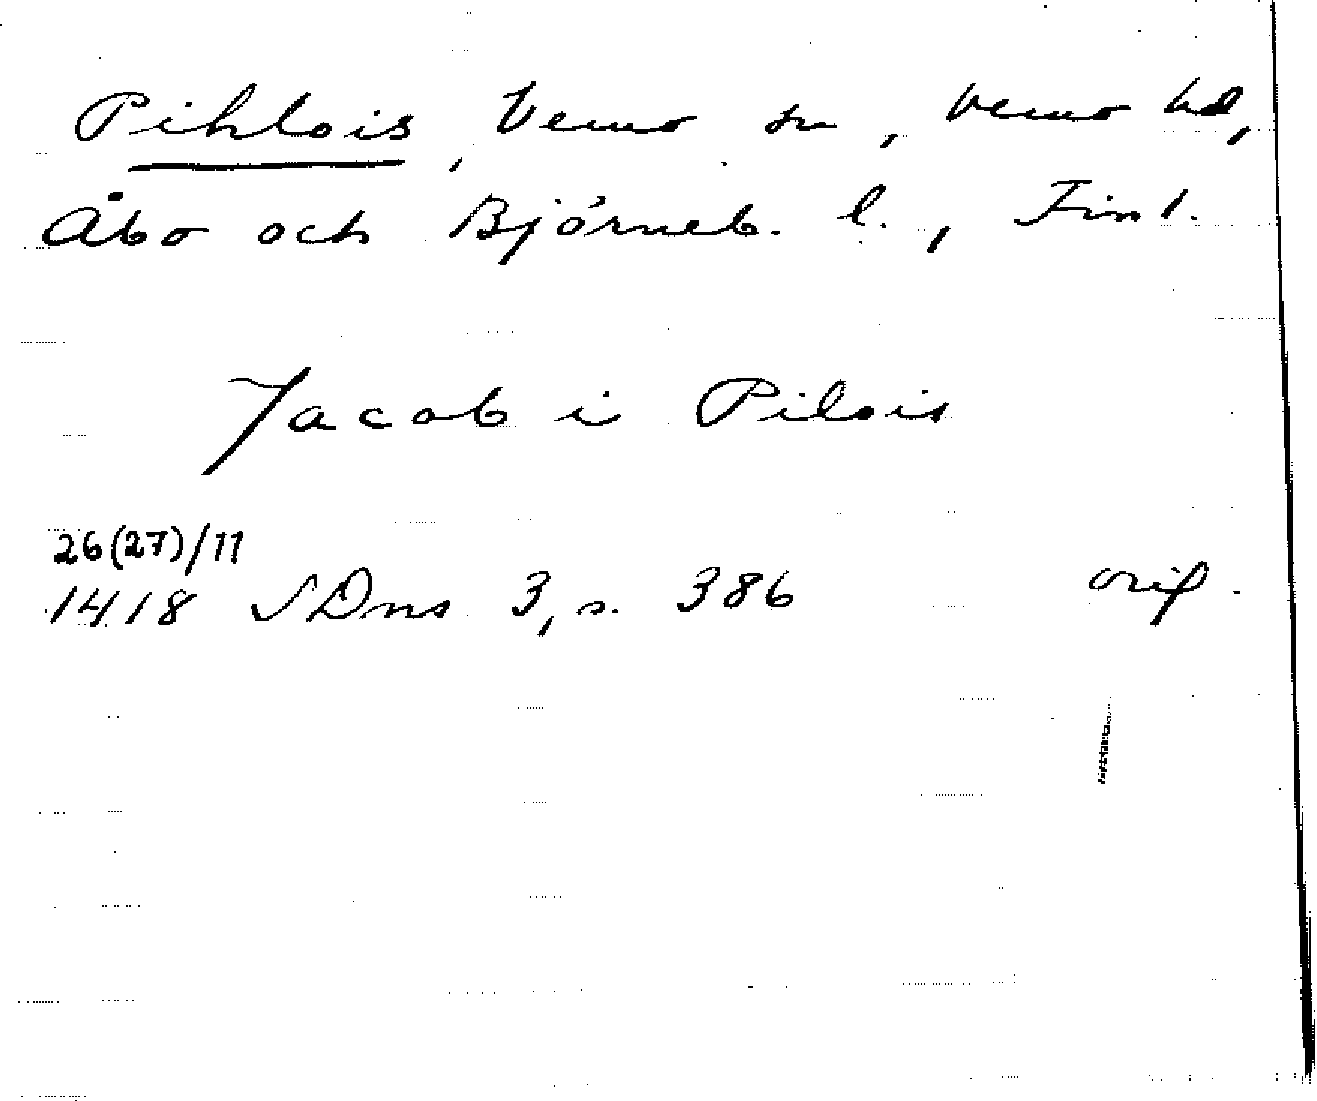 Pihlois, Vemo sn, Vemo hd,
Åbo och Björneb. l., Finl.
Jacob i Pilois
26(27)/11
1418 SDns 3, s. 386 orig.